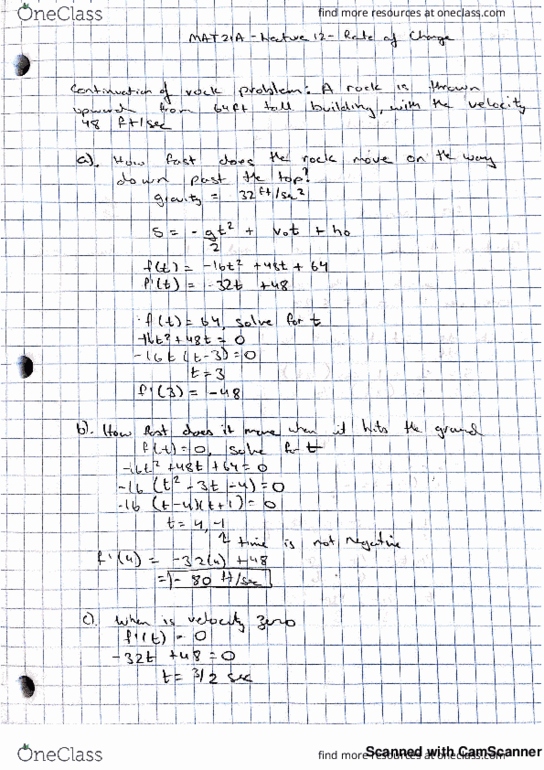 OneClass
find more resources at oneclass.com
MAT21A - Lecture 12 - Rate of Change
Continuation of rock problem: A rock is thrown
upwards from 64ft tall building, with the velocity
48 ft/sec
a). How fast does the rock move on the way
down past the top?
gravity = 32 ft/sec²
s = -gt²/2 + v₀t + h₀
f(t) = -16t² + 48t + 64
f'(t) = -32t + 48
f(t) = 64, solve for t
-16t² + 48t = 0
-16t (t-3) = 0
t = 3
f'(3) = -48
b). How fast does it move when it hits the ground
f(t) = 0, solve for t
-16t² + 48t + 64 = 0
-16 (t² - 3t - 4) = 0
-16 (t-4)(t+1) = 0
t = 4, -1
time is not negative
f'(4) = -32(4) + 48
= - 80 ft/sec
c). When is velocity zero
f'(t) = 0
-32t + 48 = 0
t = 3/2 sec
OneClass
find more resources at oneclass.com
Scanned with CamScanner